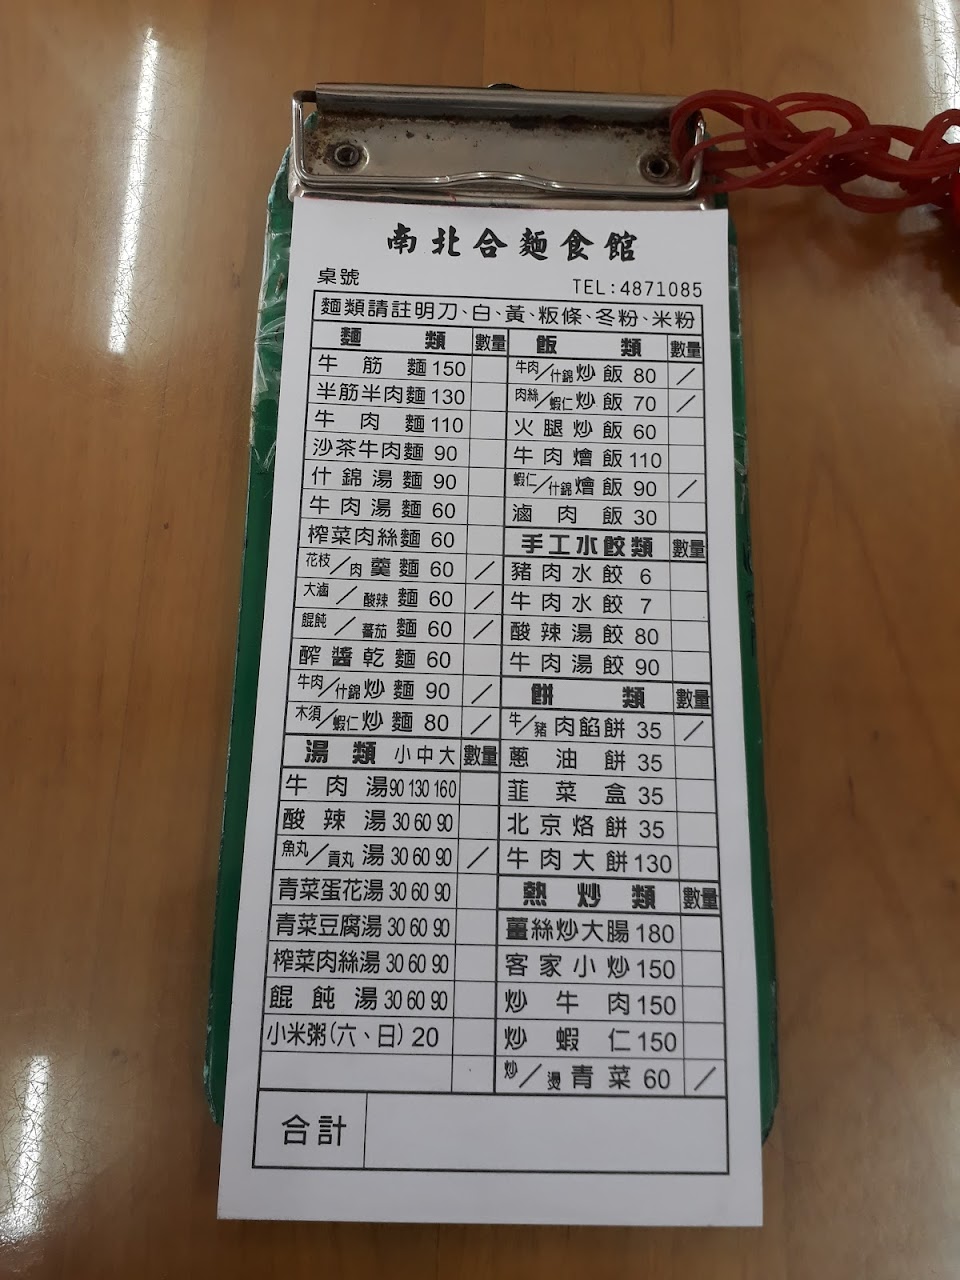 南北合麵食館
桌號 TEL:4871085
麵類請註明刀、白、黃、粄條、冬粉、米粉
麵類 數量
牛筋麵 150
半筋半肉麵 130
牛肉麵 110
沙茶牛肉麵 90
什錦湯麵 90
牛肉湯麵 60
榨菜肉絲麵 60
花枝/肉羹麵 60 /
大滷/酸辣麵 60 /
餛飩/蕃茄麵 60 /
醡醬乾麵 60
牛肉/什錦炒麵 90 /
木須/蝦仁炒麵 80 /
湯類 小中大 數量
牛肉湯 90 130 160
酸辣湯 30 60 90
魚丸/貢丸湯 30 60 90 /
青菜蛋花湯 30 60 90
青菜豆腐湯 30 60 90
榨菜肉絲湯 30 60 90
餛飩湯 30 60 90
小米粥(六、日) 20
飯類 數量
牛肉/什錦炒飯 80 /
肉絲/蝦仁炒飯 70 /
火腿炒飯 60
牛肉燴飯 110
蝦仁/什錦燴飯 90 /
滷肉飯 30
手工水餃類 數量
豬肉水餃 6
牛肉水餃 7
酸辣湯餃 80
牛肉湯餃 90
餅類 數量
牛/豬肉餡餅 35 /
蔥油餅 35
韮菜盒 35
北京烙餅 35
牛肉大餅 130
熱炒類 數量
薑絲炒大腸 180
客家小炒 150
炒牛肉 150
炒蝦仁 150
炒/燙青菜 60 /
合計